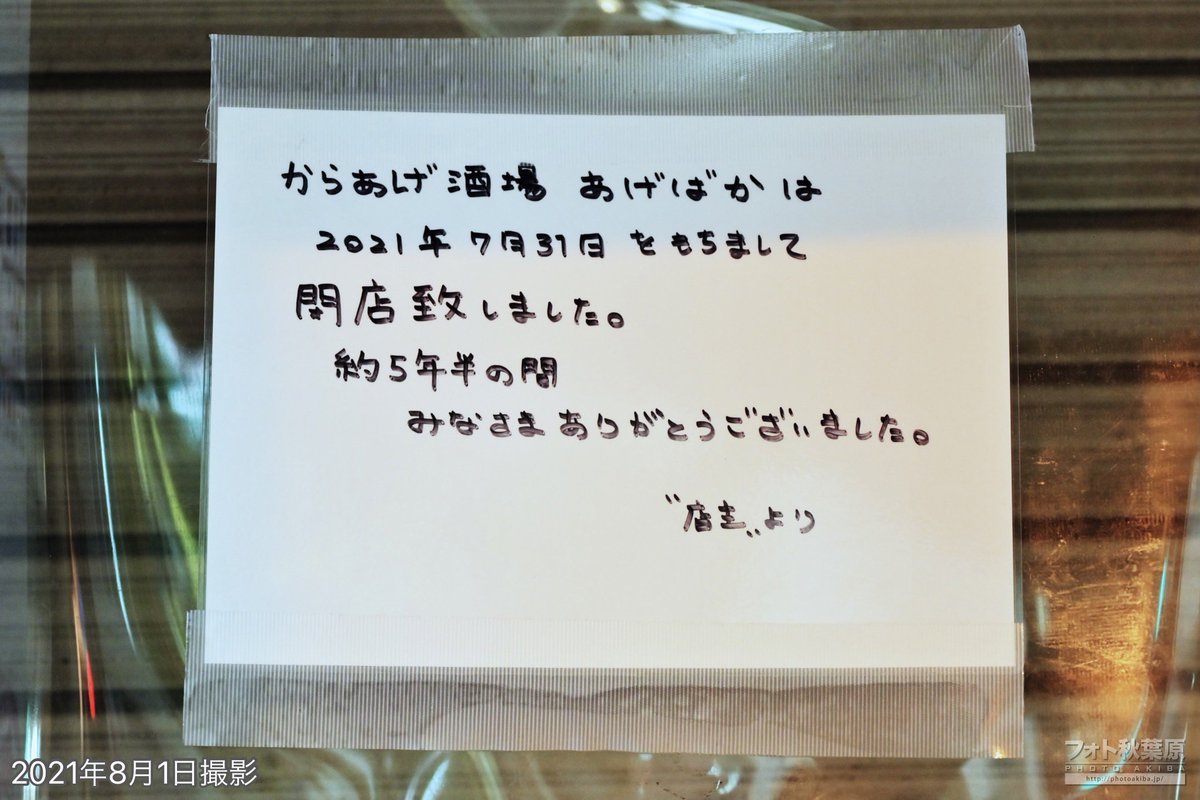 からあげ酒場 あげばかは
2021年7月31日をもちまして
閉店致しました。
約5年半の間
みなさまありがとうございました。
"店主"より
2021年8月1日撮影
フォト秋葉原
PHOTO AKIBA
http://photoakiba.jp/